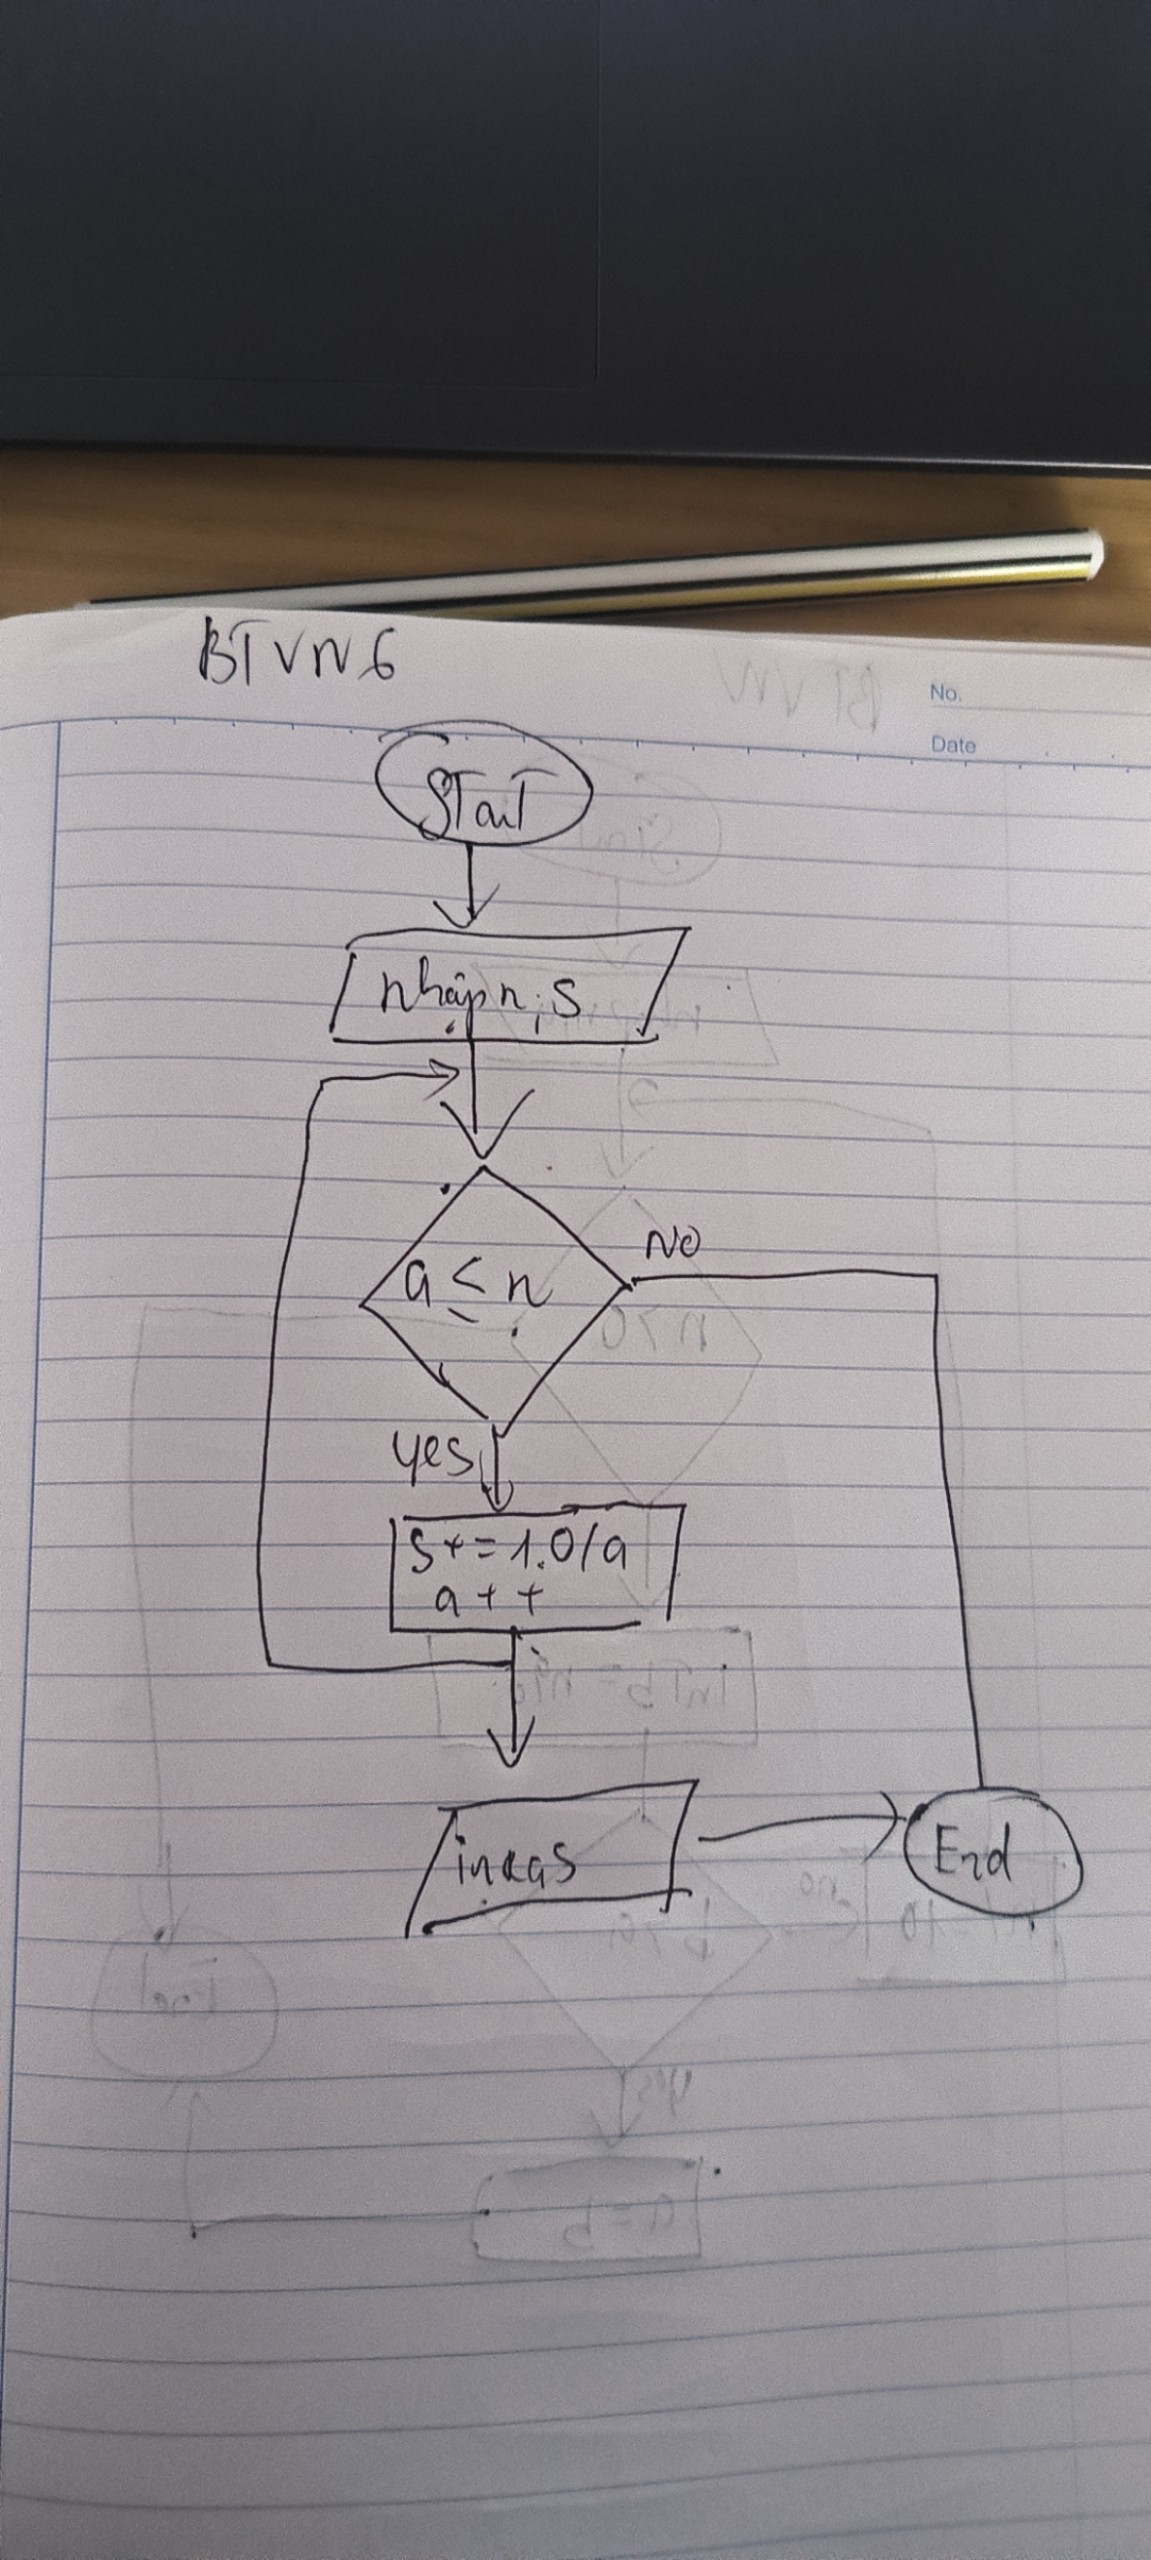 BTVN 6
No.
Date
Start
nhập n, S
a ≤ n
NO
yes
S+=1.0/a
a++
in ra S
End